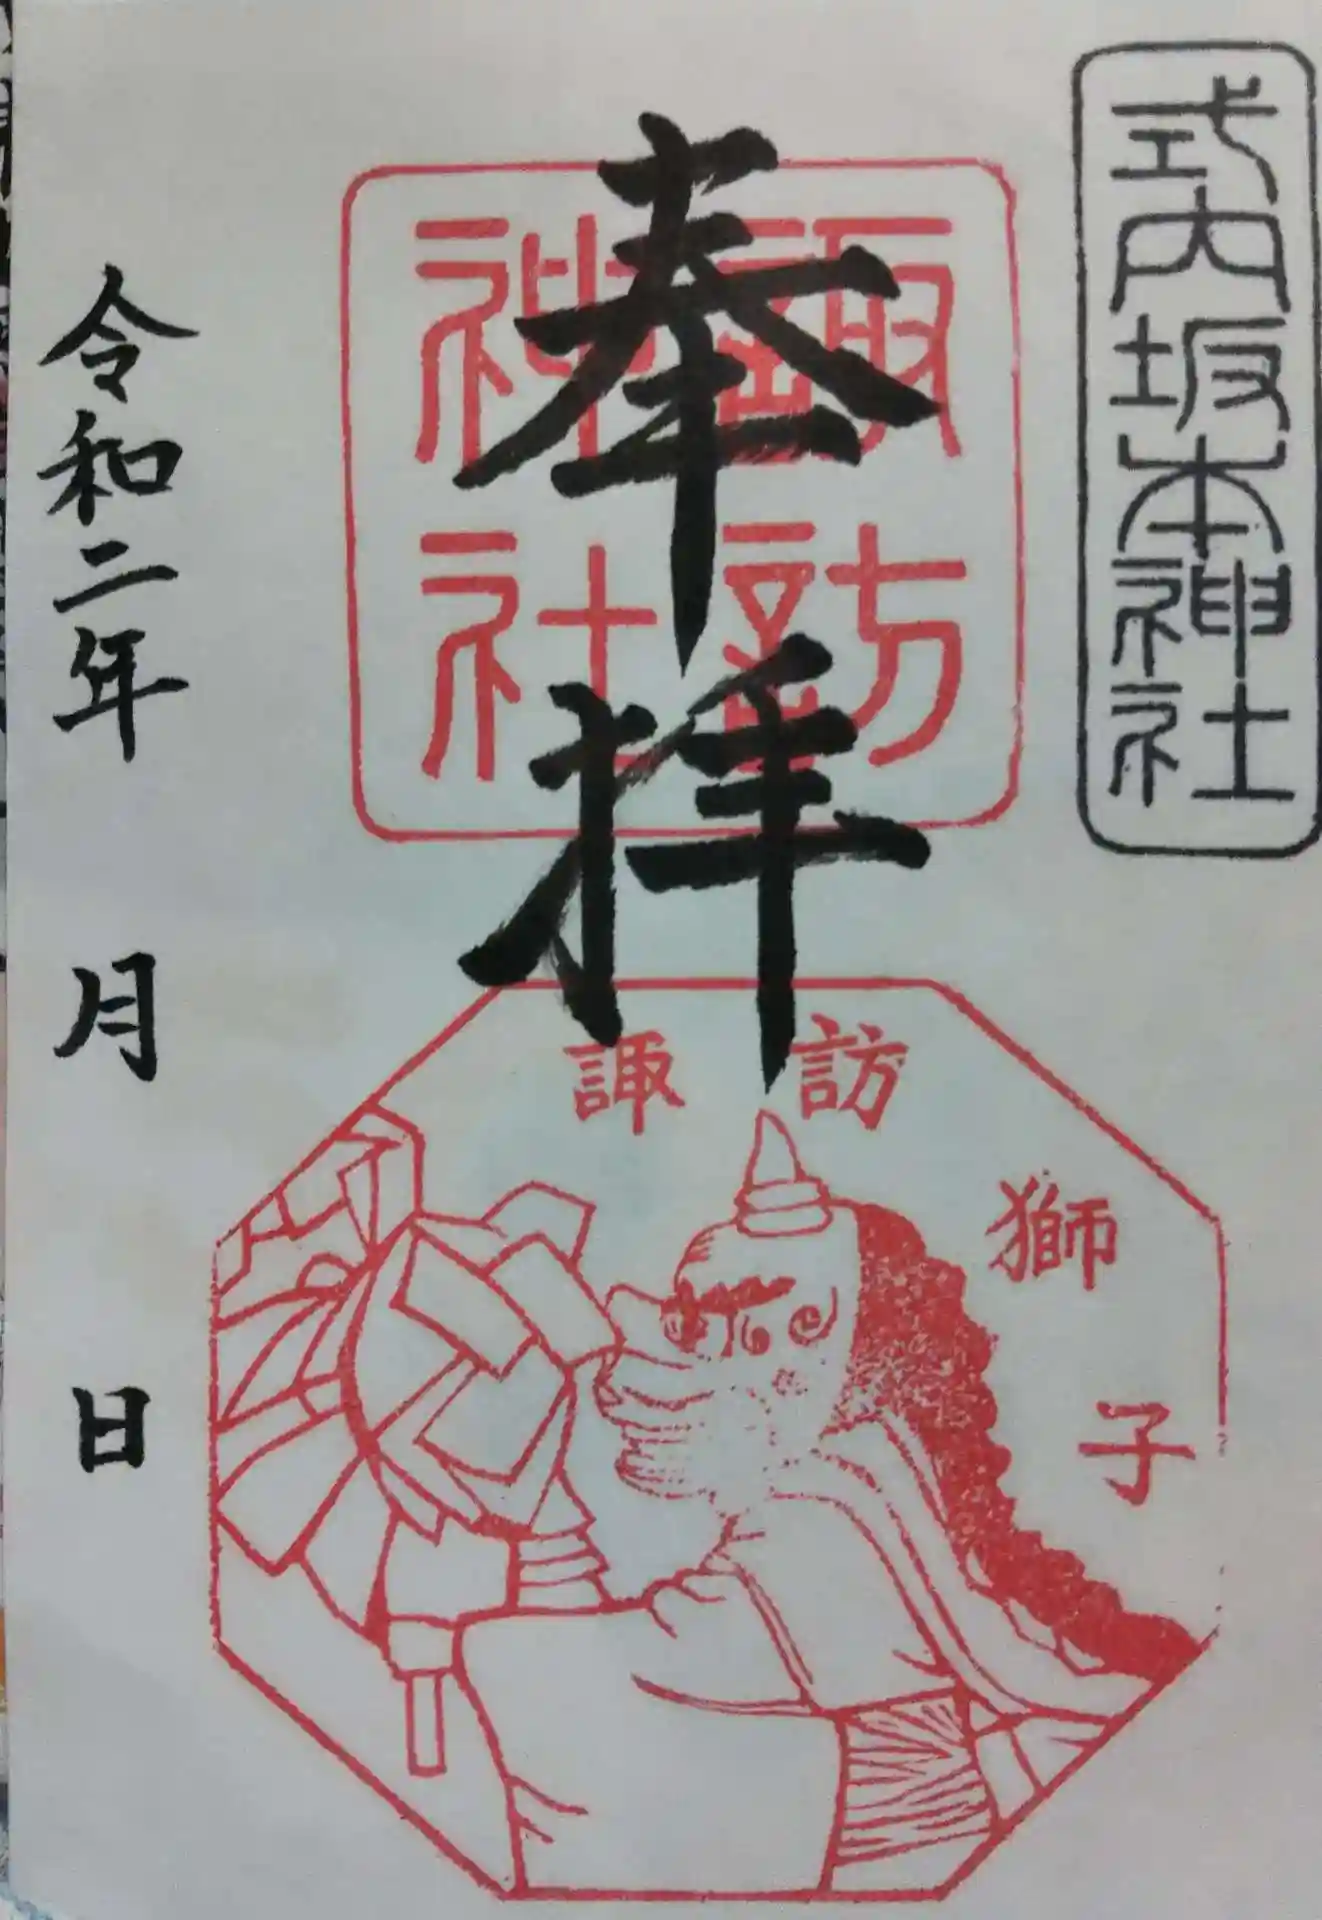 式内坂本神社
奉拝
諏訪
神社
諏訪
獅子
令和二年　月　日